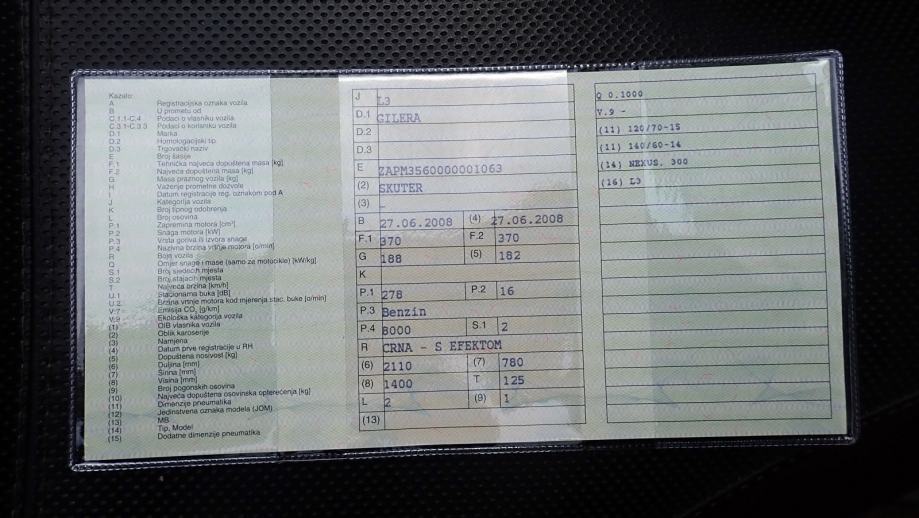 Kazalo:
A Registracijska oznaka vozila
B U prometu od
C.1.1-C.4 Podaci o vlasniku vozila
C.3.1-C.3.3 Podaci o korisniku vozila
D.1 Marka
D.2 Homologacijski tip
D.3 Trgovački naziv
E Broj šasije
F.1 Tehnička najveća dopuštena masa [kg]
F.2 Najveća dopuštena masa [kg]
G Masa praznog vozila [kg]
H Važenje prometne dozvole
I Datum registracije reg. oznakom pod A
J Kategorija vozila
K Broj tipnog odobrenja
L Broj osovina
P.1 Zapremina motora [cm³]
P.2 Snaga motora [kW]
P.3 Vrsta goriva ili izvora snage
P.4 Nazivna brzina vrtnje motora [o/min]
R Boja vozila
Q Omjer snage i mase (samo za motocikle) [kW/kg]
S.1 Broj sjedećih mjesta
S.2 Broj stajaćih mjesta
T Najveća brzina [km/h]
U.1 Stacionarna buka [dB]
U.2 Brzina vrtnje motora kod mjerenja stac. buke [o/min]
V.7 Emisija CO₂ [g/km]
V.9 Ekološka kategorija vozila
(1) OIB vlasnika vozila
(2) Oblik karoserije
(3) Namjena
(4) Datum prve registracije u RH
(5) Dopuštena nosivost [kg]
(6) Duljina [mm]
(7) Širina [mm]
(8) Visina [mm]
(9) Broj pogonskih osovina
(10) Najveća dopuštena osovinska opterećenja [kg]
(11) Dimenzije pneumatika
(12) Jedinstvena oznaka modela (JOM)
(13) MB
(14) Tip, Model
(15) Dodatne dimenzije pneumatika
J L3
D.1 GILERA
D.2
D.3
E ZAPM3560000001063
(2) SKUTER
(3) -
B 27.06.2008 (4) 27.06.2008
F.1 370 F.2 370
G 188 (5) 182
K
P.1 278 P.2 16
P.3 Benzin
P.4 8000 S.1 2
R CRNA - S EFEKTOM
(6) 2110 (7) 780
(8) 1400 T 125
L 2 (9) 1
(13)
Q 0.1000
V.9 -
(11) 120/70-15
(11) 140/60-14
(14) NEXUS, 300
(16) L3